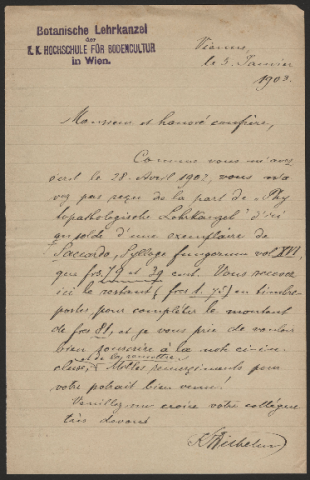 Botanische Lehrkanzel
der
K. K. HOCHSCHULE FÜR BODENCULTUR
in Wien.
Vienne,
le 5. Janvier
1903.
Monsieur et honoré confrère,
Comme vous m'avez
écrit le 28. Avril 1902, vous n'a
vez pas reçu de la part de "Phy
topathologische Lehrkanzel" d'ici
qu solde d'une exemplaire de
Saccardo, Sylloge fungorum vol XVI,
que frs. 79 et 29 cent. Vous recevez
ici le restant (frcs 1. 75) en timbre
postes pour compléter le montant
de frcs 81, et je vous prie de vouloir
bien souscrire à la note ci-in
cluse, et de la remettre
Milles remerciments pour
votre portrait bien venu!
Veuillez me croire votre collègue
très dévoué